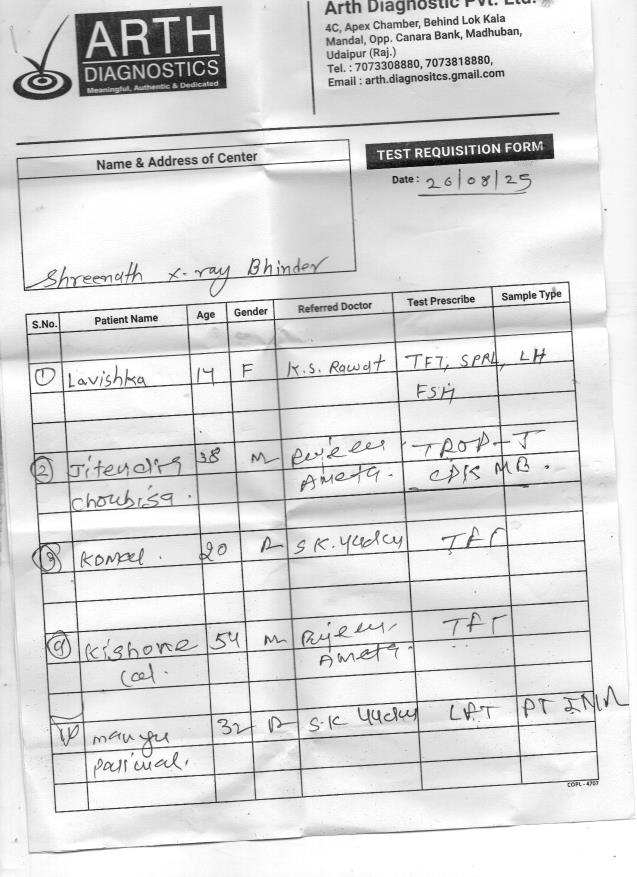 ARTH
DIAGNOSTICS
Meaningful, Authentic & Dedicated
Arth Diagnostic Pvt. Ltd.
4C, Apex Chamber, Behind Lok Kala
Mandal, Opp. Canara Bank, Madhuban,
Udaipur (Raj.)
Tel. : 7073308880, 7073818880,
Email : arth.diagnositcs.gmail.com
Name & Address of Center
TEST REQUISITION FORM
Date : 26/08/25
Shreenath x-ray Bhinder
S.No. Patient Name Age Gender Referred Doctor Test Prescribe Sample Type
1 Lavishka 14 F K.S. Rawat TFT, SPRL, LH
FSH
2 Jitendra 38 M Ameta. TROP-I
Choubisa. CPK MB.
3 Komal. 20 F S K. Yadav TFT
4 Kishore 54 M Ameta. TFT
Lal.
32 F S.K Yadav LFT PT INR
COPL - 4707